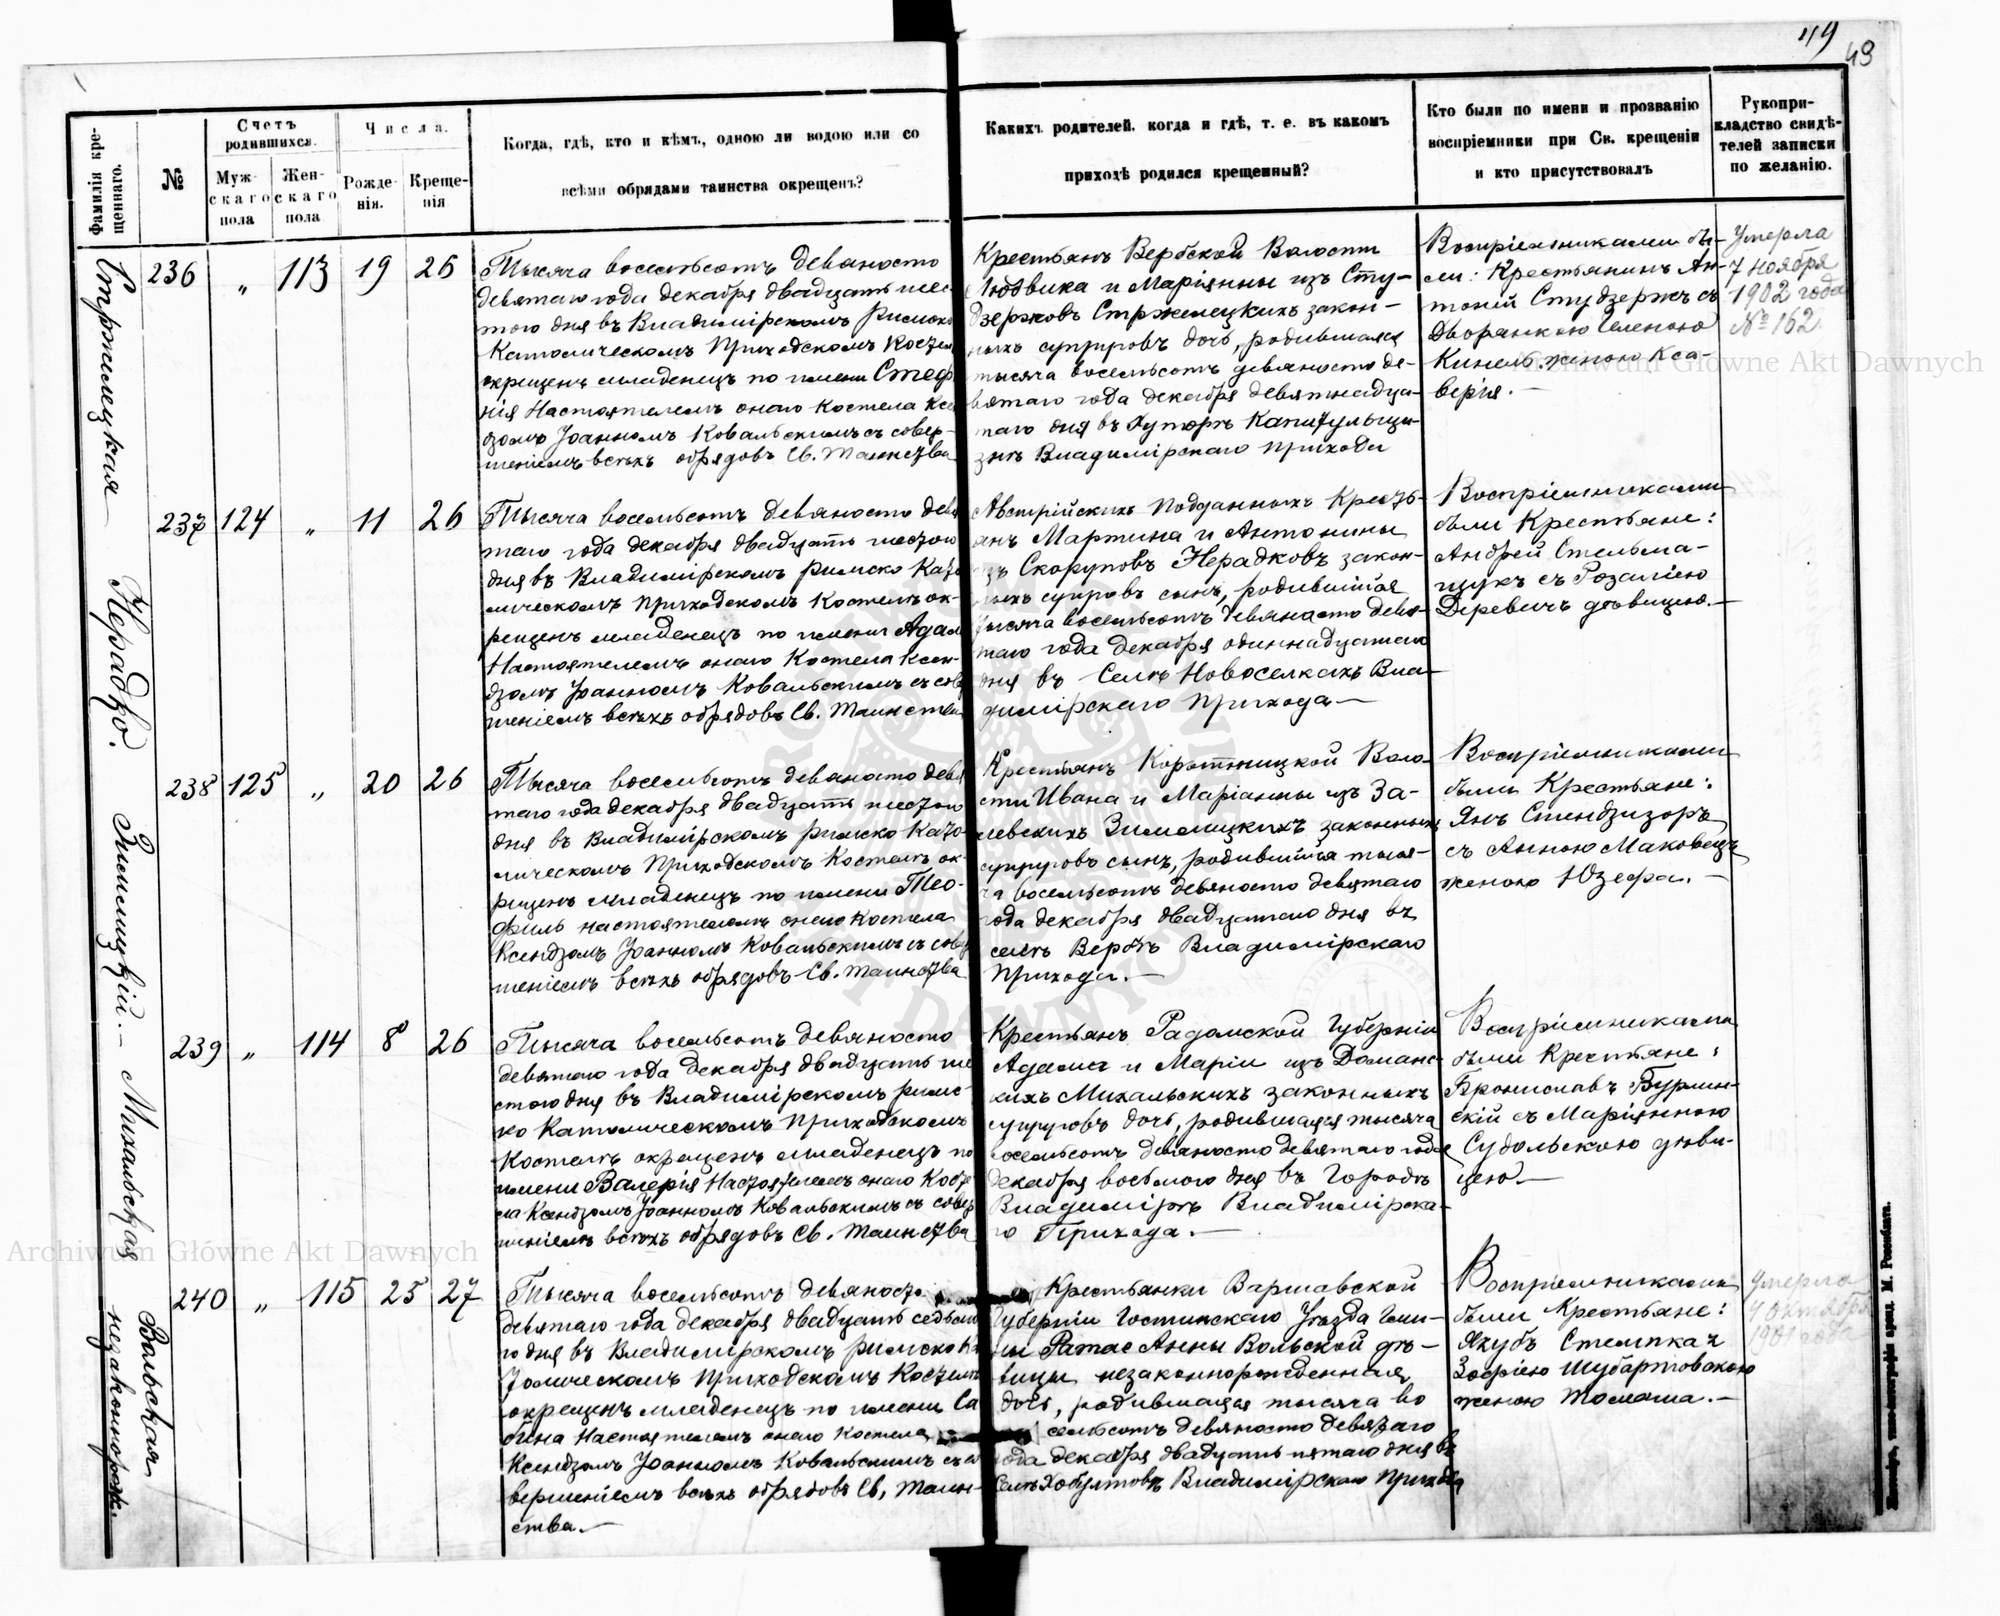 49
49
Фамилія кре-
щеннаго.
№
Счетъ
родившихся.
Муж-
скаго
пола
Жен-
скаго
пола
Числа.
Рожде-
нія.
Креще-
нія
Когда, гдѣ, кто и кѣмъ, одною ли водою или со
всѣми обрядами таинства окрещенъ?
Какихъ родителей, когда и гдѣ, т. е. въ какомъ
приходѣ родился крещенный?
Кто были по имени и прозванію
воспріемники при Св. крещеніи
и кто присутствовалъ
Рукопри-
кладство свидѣ-
телей записки
по желанію.
Стржелецкая
236 „ 113 19 26
Тысяча восемьсотъ девяносто
девятаго года декабря двадцать шес-
того дня въ Владимірскомъ Римско
Католическомъ Приходскомъ Костел
окрещенъ младенецъ по имени Стеф
нія Настоятелемъ онаго Костела Ксе
дзомъ Іоанномъ Ковальскимъ съ совер-
шеніемъ всѣхъ обрядовъ Св. Таинства
Крестьянъ Вербской Волости
Людвика и Маріянны изъ Сту-
дзержовъ Стржелецкихъ закон-
ныхъ супруговъ дочь, родившаяся
тысяча восемьсотъ девяносто де-
вятаго года декабря девятнадца-
таго дня въ Хуторѣ Капитульщи-
знѣ Владимірскаго прихода
Воспріемниками бы-
ли: Крестьянинъ Ан-
тоній Студзержъ съ
Дворянкою Еленою
Кинель женою Кса-
верія.-
Умерла
7 ноября
1902 года
№ 162
Нерадко.
237 124 „ 11 26
Тысяча восемьсотъ девяносто девя
таго года декабря двадцать шестого
дня въ Владимірскомъ римско Като
лическомъ приходскомъ Костелѣ ок-
рещенъ младенецъ по имени Адам
Настоятелемъ онаго Костела Ксен-
дзомъ Іоанномъ Ковальскимъ съ сов
шеніемъ всѣхъ обрядовъ Св. Таинства
Австрійскихъ Подданныхъ Кресть-
янъ Мартина и Антонины
изъ Скоруповъ Нерадковъ закон-
ныхъ супруговъ сынъ, родившійся
тысяча восемьсотъ девяносто девя-
таго года декабря одиннадцатаго
дня въ Селѣ Новоселкахъ Вла-
димірскаго прихода—
Воспріемниками
были Крестьяне:
Андрей Стельма-
щукъ съ Розаліею
Деревичъ дѣвицею.—
Зимлицкій.-
238 125 „ 20 26
Тысяча восемьсотъ девяносто девя
таго года декабря двадцать шестого
дня въ Владимірскомъ римско Като-
лическомъ Приходскомъ Костелѣ ок-
рещенъ младенецъ по имени Тео-
филь настоятелемъ онаго Костела
Ксендзомъ Іоанномъ Ковальскимъ съ сове
шеніемъ всѣхъ обрядовъ Св. таинства
Крестьянъ Корытницкой Воло
сти Ивана и Маріанны изъ За-
левскихъ Зимлицкихъ законныхъ
супруговъ сынъ, родившійся тыся-
ча восемьсотъ девяносто девятаго
года декабря двадцатаго дня въ
селѣ Вербѣ Владимірскаго
прихода.—
Воспріемниками
были Крестьяне:
Янъ Спендзизоръ
съ Анною Маковецъ
женою Юзефа.—
Михальская
239 „ 114 8 26
Тысяча восемьсотъ девяносто
девятаго года декабря двадцать ше
стого дня въ Владимірскомъ римс-
ко Католическомъ приходскомъ
Костелѣ окрещенъ младенецъ по
имени Валерія Настоятелемъ онаго Косте
ла Ксендзомъ Іоанномъ Ковальскимъ съ совер
шеніемъ всѣхъ обрядовъ Св. Таинства
Крестьянъ Радомской губерніи
Адама и Маріи изъ Доманс-
кихъ Михальскихъ законныхъ
супруговъ дочь, родившаяся тысяча
восемьсотъ девяносто девятаго года
декабря восьмого дня въ Городѣ
Владимірѣ Владимірска-
го Прихода.—
Воспріемниками
были Крестьяне:
Брониславъ Бурлин-
скій съ Маріянною
Судольскою дѣви-
цею.—
Вольская
незаконнорож.
240 „ 115 25 27
Тысяча восемьсотъ девяносто
девятаго года декабря двадцать седьмо
го дня въ Владимірскомъ римско Ка
толическомъ приходскомъ Костелѣ
окрещенъ младенецъ по имени Са
бина Настоятелемъ онаго Костела
Ксендзомъ Іоанномъ Ковальскимъ съ со
вершеніемъ всѣхъ обрядовъ Св. Таин-
ства.—
Крестьянки Варшавской
Губерніи Гостинскаго Уѣзда Гми-
ны Ратае Анны Вольской дѣ-
вицы незаконнорожденная
дочь, родившаяся тысяча во
семьсотъ девяносто девятаго
года декабря двадцать пятаго дня въ
Селѣ Хобултовѣ Владимірскаго прихода
Воспріемниками
были Крестьяне:
Якубъ Стемпка съ
Зофіею Шубартовскою
женою Томаша.—
Умерла
4 Октября
1901 года
Archiwum Główne Akt Dawnych
Archiwum Główne Akt Dawnych
Житоміръ, типо-литографія аренд. М. Розенблата.